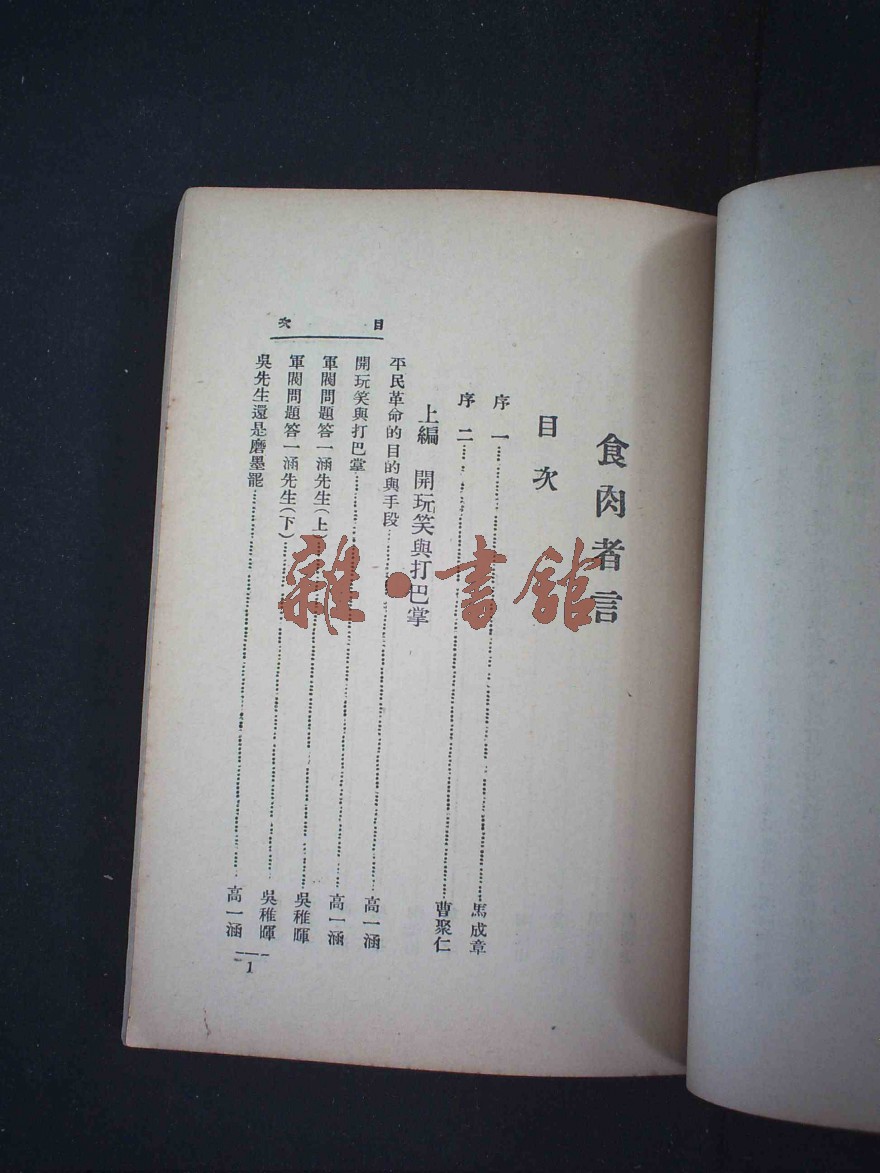 食肉者言
目次
序一……馬成章
序二……曹聚仁
上編 開玩笑與打巴掌
平民革命的目的與手段……高一涵
開玩笑與打巴掌……高一涵
軍閥問題答一涵先生(上)……吳稚暉
軍閥問題答一涵先生(下)……吳稚暉
吳先生還是磨墨罷……高一涵
目次
1
雜·書館